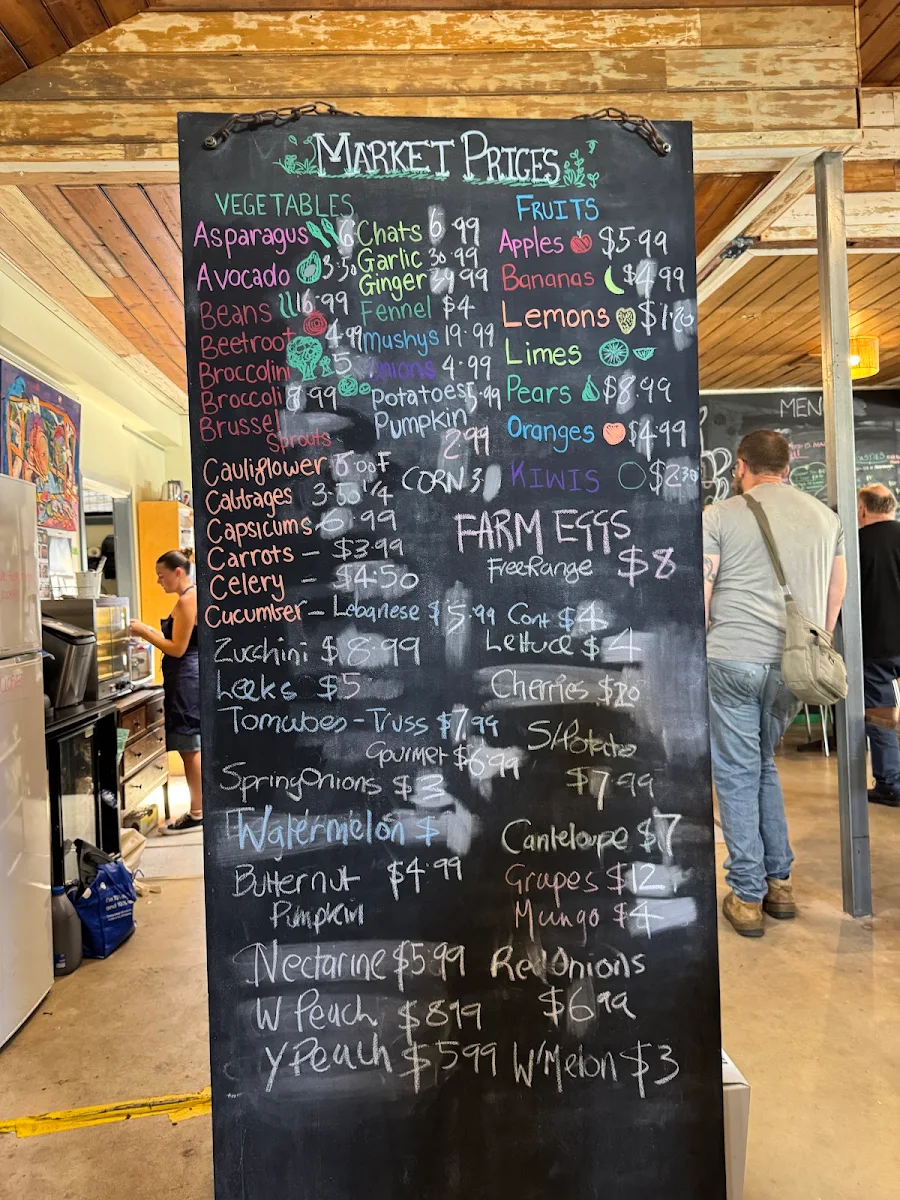 MARKET PRICES
VEGETABLES
Asparagus 6
Avocado 3.50
Beans 16.99
Beetroot 4.99
Broccolini 5
Broccoli 8.99
Brussel
Sprouts
Chats 6.99
Garlic 30.99
Ginger 39.99
Fennel $4
Mushys 19.99
Onions 4.99
Potatoes 5.99
Pumpkin
2.99
CORN 3
FRUITS
Apples $5.99
Bananas $4.99
Lemons $1.20
Limes
Pears $8.99
Oranges $4.99
KIWIS $2.30
Cauliflower
Cabbages 3.50 1/4
Capsicums 6.99
Carrots - $3.99
Celery - $4.50
Cucumber - Lebanese $5.99 Cont $4
FARM EGGS
Free Range $8
Lettuce $4
Zucchini $8.99
Leeks $5
Cherries $20
Tomatoes - Truss $7.99
Gourmet $6.99
S/Potato
$7.99
Spring Onions $3
Watermelon $
Canteloupe $7
Butternut $4.99
Pumpkin
Grapes $12
Mungo $4
Nectarine $5.99
Red Onions
$6.99
W Peach $8.99
Y Peach $5.99
W/Melon $3
MEN